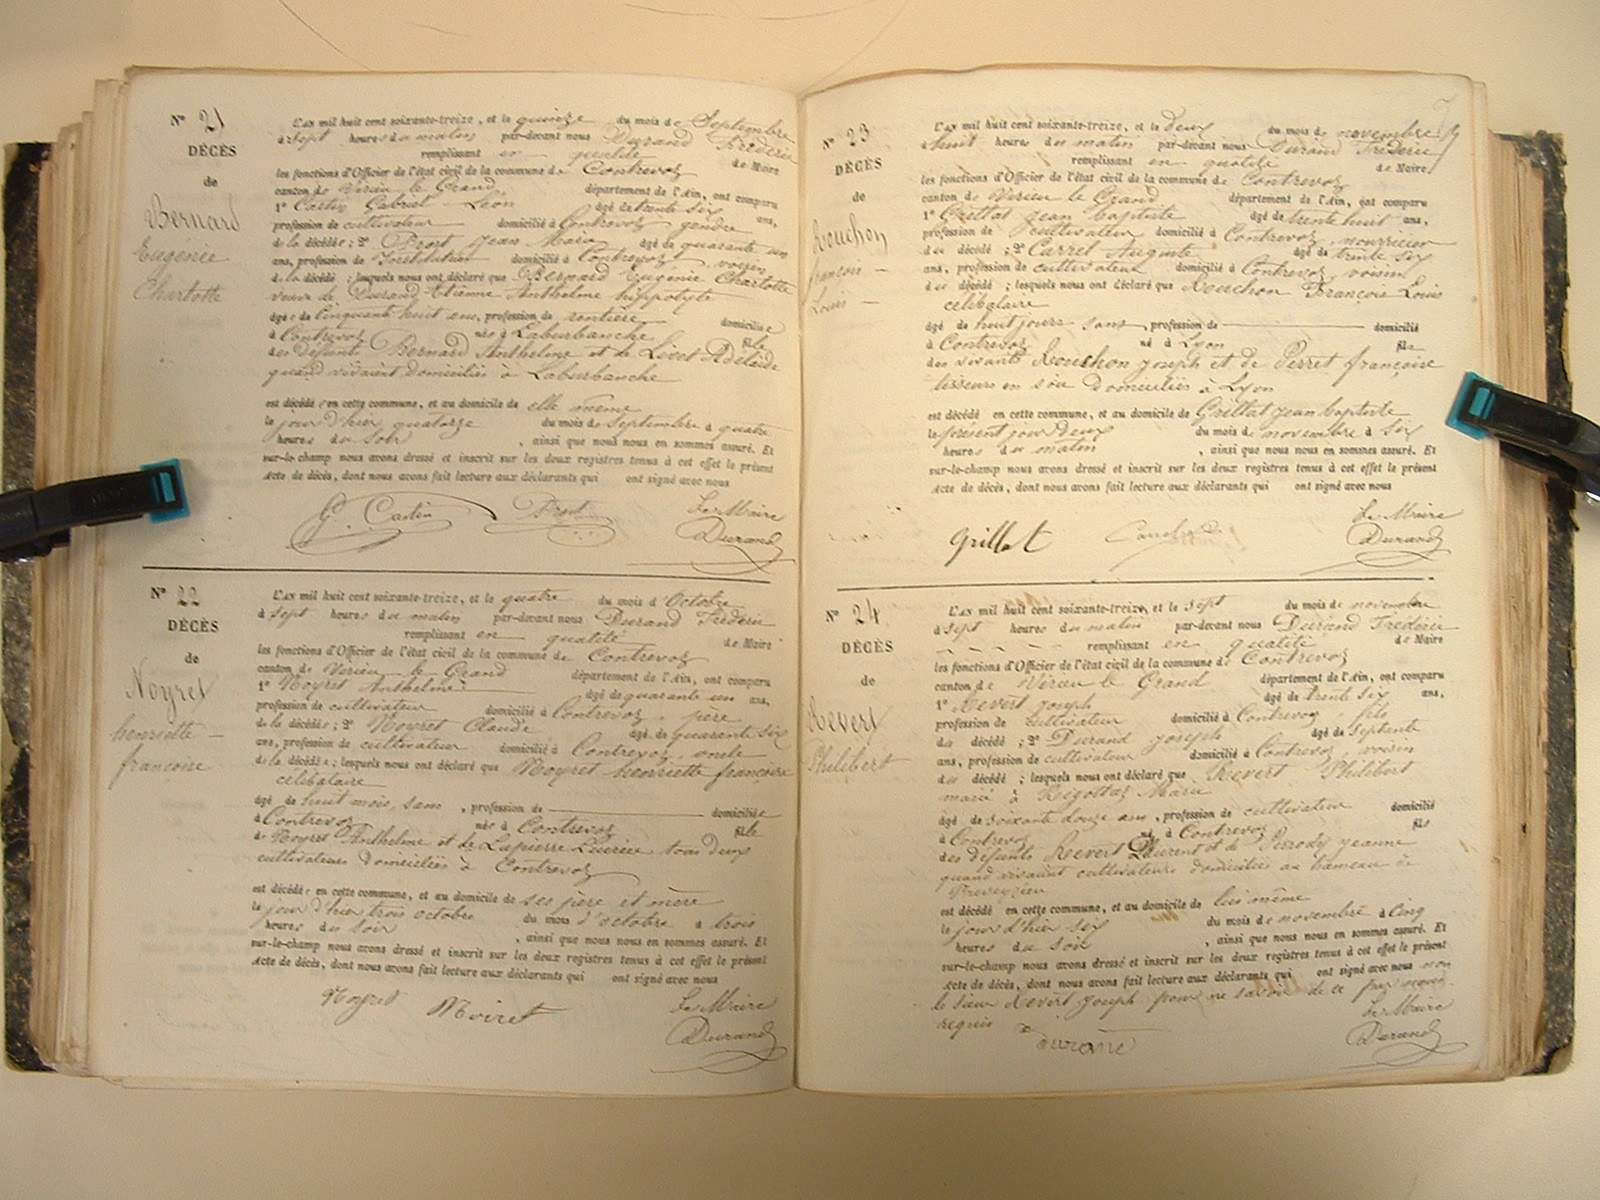 N° 21
DÉCÈS
de
Bernard
Eugénie
Charlotte
L'AN mil huit cent soixante-treize, et le quinze du mois de Septembre
à sept heures du matin par-devant nous Durand Frédéric
remplissant en qualité de Maire
les fonctions d'Officier de l'état civil de la commune de Contrevoz
canton de Virieu le Grand, département de l'Ain, ont comparu
1° Castin Gabriel Léon âgé de trente six ans,
profession de cultivateur domicilié à Contrevoz gendre
de la décédée ; 2° Prost Jean Marie âgé de quarante un
ans, profession de Instituteur domicilié à Contrevoz, voisin
de la décédée ; lesquels nous ont déclaré que Bernard Eugénie Charlotte
veuve de Durand Etienne Anthelme hippolyte
âgée de Cinquante huit ans, profession de rentière domiciliée
à Contrevoz née à Laburbanche fille
des défunts Bernard Anthelme et de Livet Adélaide
quand vivaient domiciliés à Laburbanche
est décédée en cette commune, et au domicile de elle même
le jour d'hier quatorze du mois de Septembre à quatre
heures du soir , ainsi que nous nous en sommes assuré. Et
sur-le-champ nous avons dressé et inscrit sur les deux registres tenus à cet effet le présent
acte de décès, dont nous avons fait lecture aux déclarants qui ont signé avec nous
G. Castin Prost Le Maire
Durand
N° 22
DÉCÈS
de
Noyret
henriette
francoise
L'AN mil huit cent soixante-treize, et le quatre du mois d'Octobre
à sept heures du matin par-devant nous Durand Frédéric
remplissant en qualité de Maire
les fonctions d'Officier de l'état civil de la commune de Contrevoz
canton de Virieu le Grand département de l'Ain, ont comparu
1° Noyret Anthelme âgé de quarante un ans,
profession de cultivateur domicilié à Contrevoz, père
de la décédée ; 2° Noyret Claude âgé de quarente six
ans, profession de cultivateur domicilié à Contrevoz, oncle
de la décédée ; lesquels nous ont déclaré que Noyret henriette françoise
célibataire
âgée de huit mois, sans , profession de domiciliée
à Contrevoz née à Contrevoz fille
de Noyret Anthelme et de Lapierre tous deux
cultivateurs domiciliés à Contrevoz
est décédée en cette commune, et au domicile de ses père et mère
le jour d'hier trois octobre du mois d'octobre à trois
heures du soir , ainsi que nous nous en sommes assuré. Et
sur-le-champ nous avons dressé et inscrit sur les deux registres tenus à cet effet le présent
acte de décès, dont nous avons fait lecture aux déclarants qui ont signé avec nous
Noyret Noiret Le Maire
Durand
N° 23
DÉCÈS
de
Rouchon
françois
Louis
L'AN mil huit cent soixante-treize, et le deux du mois de novembre
à huit heures du matin par-devant nous Durand Frédéric
remplissant en qualité de Maire
les fonctions d'Officier de l'état civil de la commune de Contrevoz
canton de Virieu le Grand département de l'Ain, ont comparu
1° Grillat Jean baptiste âgé de trente huit ans,
profession de cultivateur domicilié à Contrevoz, nourricier
du décédé ; 2° Carret Auguste âgé de trente six
ans, profession de cultivateur domicilié à Contrevoz, voisin
du décédé ; lesquels nous ont déclaré que Rouchon François Louis
célibataire
âgé de huit jours sans profession de domicilié
à Contrevoz né à Lyon fils
des vivants Rouchon joseph et de Perret françoise
tisseurs en soie Domiciliés à Lyon
est décédé en cette commune, et au domicile de Grillat jean baptiste
le présent jour deux du mois de novembre à six
heures du matin , ainsi que nous nous en sommes assuré. Et
sur-le-champ nous avons dressé et inscrit sur les deux registres tenus à cet effet le présent
acte de décès, dont nous avons fait lecture aux déclarants qui ont signé avec nous
Grillat Le Maire
Durand
N° 24
DÉCÈS
de
Revert
Philibert
L'AN mil huit cent soixante-treize, et le sept du mois de novembre
à sept heures du matin par-devant nous Durand Frédéric
remplissant en qualité de Maire
les fonctions d'Officier de l'état civil de la commune de Contrevoz
canton de Virieu le Grand département de l'Ain, ont comparu
1° Revert Joseph âgé de trente six ans,
profession de cultivateur domicilié à Contrevoz fils
du décédé ; 2° Durand joseph âgé de septante
ans, profession de cultivateur domicilié à Contrevoz, voisin
du décédé ; lesquels nous ont déclaré que Revert Philibert
marié à Rigottaz Marie
âgé de soixante douze ans, profession de cultivateur domicilié
à Contrevoz né à Contrevoz fils
des défunts Revert Laurent et de jeanne
quand vivaient cultivateurs domiciliés au hameau de
Preveyzieu
est décédé en cette commune, et au domicile de lui même
le jour d'hier six du mois de novembre à Cinq
heures du soir , ainsi que nous nous en sommes assuré. Et
sur-le-champ nous avons dressé et inscrit sur les deux registres tenus à cet effet le présent
acte de décès, dont nous avons fait lecture aux déclarants qui ont signé avec nous non
le sieur Revert joseph pour ne savoir de ce par nous
requis Le Maire
durand Durand